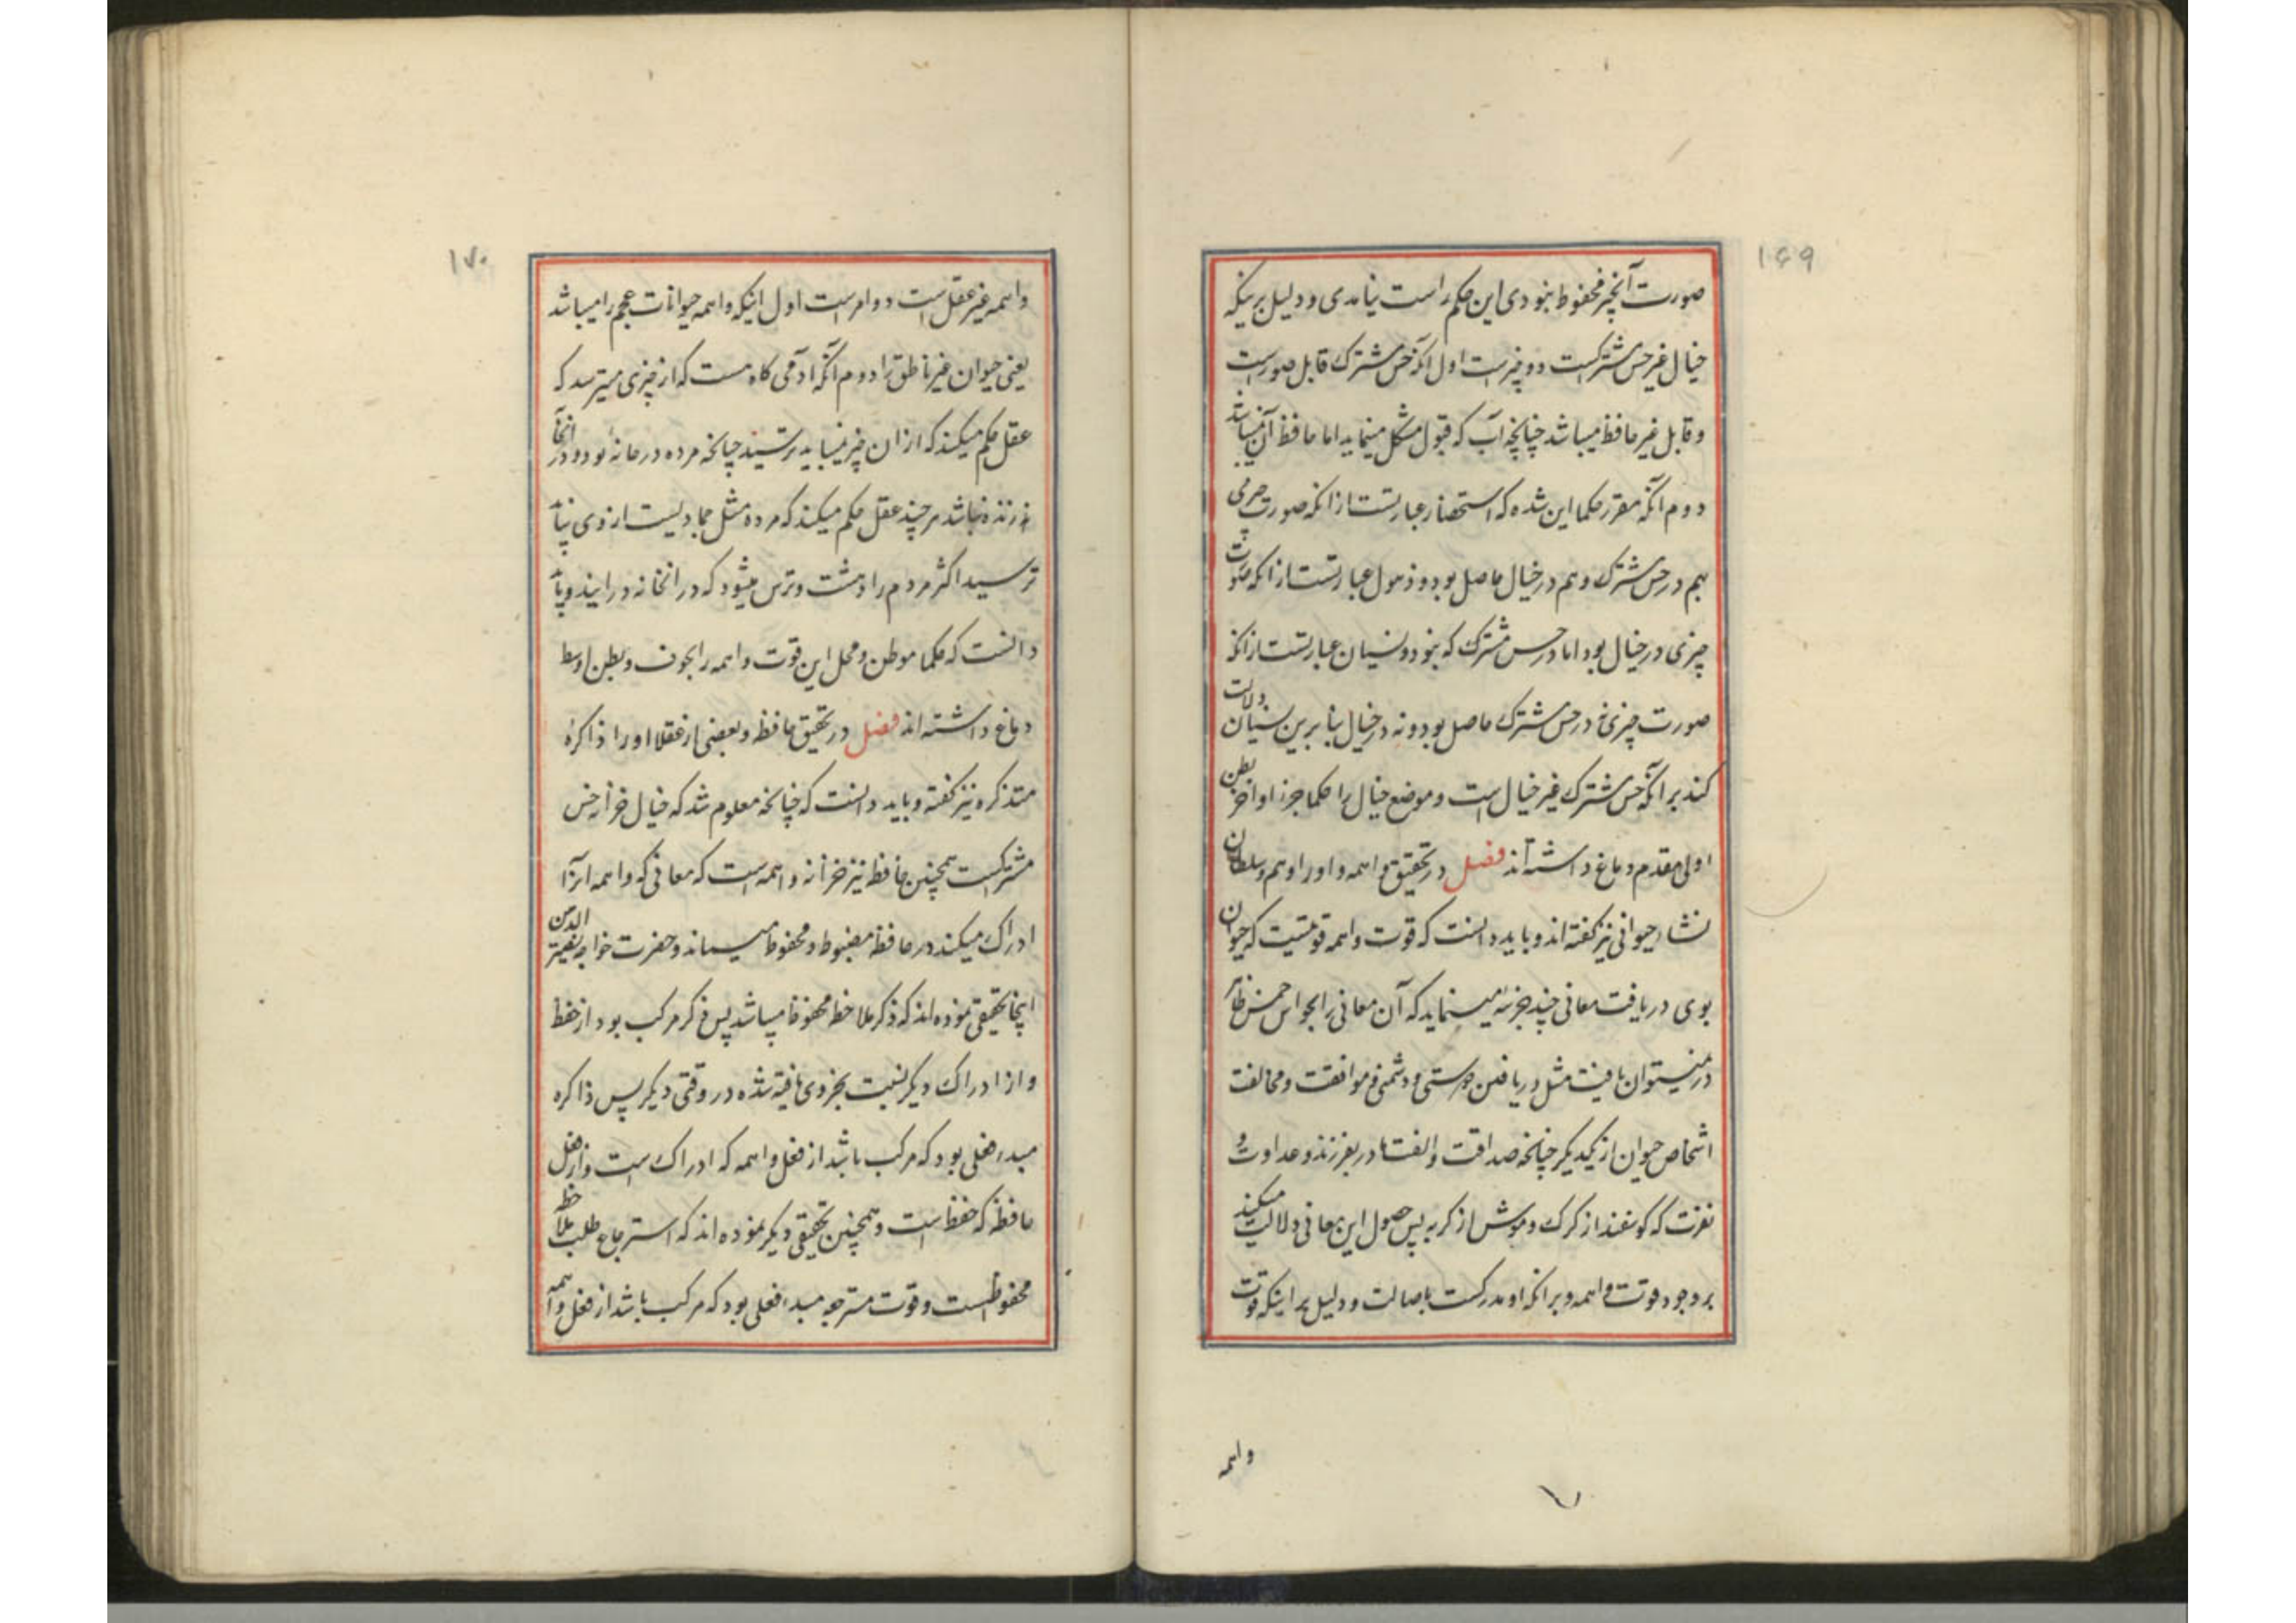 ۱۶۹
صورت آنچیز محفوظ نبودی این حکم راست نیامدی و دلیل برینکه
خیال غیر حس مشترکست دو چیزست اول آنکه حس مشترک قابل صورتست
و قابل غیر حافظ میباشد چنانچه آب که قبول شکل مینماید اما حافظ آن نمیباشد
دوم آنکه مقرر حکما این شده که استحضار عبارتست ازانکه صورت چیزی
هم در حس مشترک و هم در خیال حاصل بود و ذهول عبارتست ازانکه صورت
چیزی در خیال بود اما در حس مشترک که نبود و نسیان عبارتست ازانکه
صورت چیزی نه در حس مشترک حاصل بود و نه در خیال بنا برین نسیان دلالت
کند برانکه حس مشترک غیر خیال است و موضع خیال را حکما جزو اواخر بطن
اولی مقدم دماغ داشته‌اند فصل در تحقیق واهمه و او را وهم و سلطان
نشاء حیوانی نیز گفته‌اند و باید دانست که قوت واهمه قوتیست که حیوان
بوی دریافت معانی چند جزئیه مینماید که آن معانی را بحواس خمس ظاهر
در نمیتوان یافت مثل دریافتن دوستی و دشمنی و موافقت و مخالفت
اشخاص حیوان از یکدیگر چنانچه صداقت و الفت مادر بفرزند و عداوت و
نفرت که گوسفند از گرگ و موش از گربه پس حصول این معانی دلالت میکند
بر وجود قوت واهمه و برانکه او مدرکست باصالت و دلیل بر اینکه قوت
واهمه
۱۷۰
واهمه غیر عقل است دو امرست اول اینکه واهمه حیوانات عجم را میباشد
یعنی حیوان غیر ناطق را دوم آنکه آدمی گاه هست که از چیزی میترسد که
عقل حکم میکند که ازان چیز نمیباید ترسید چنانچه مرده در خانه بود و در آنجا
زنده نباشد هر چند عقل حکم میکند که مرده مثل جمادیست از وی نباید
ترسید اکثر مردم را دهشت و ترس میشود که در انخانه در ایند و باید
دانست که حکما موطن و محل این قوت واهمه را بجوف و بطن اوسط
دماغ داشته‌اند فصل در تحقیق حافظه و بعضی از عقلا او را ذاکره
متذکره نیز گفته و باید دانست که چنانچه معلوم شد که خیال خزانه حس
مشترکست همچنین حافظه نیز خزانه واهمه است که معانی که واهمه انرا
ادراک میکند در حافظه مضبوط و محفوظ میماند و حضرت خواجه نصیر الدین
اینجا تحقیقی نموده‌اند که ذکر ملاحظه محفوظ میباشد پس ذکر مرکب بود از حفظ
و از ادراک دیگر نسبت بجزوی یافته شده در وقتی دیگر پس ذاکره
مبدء فعلی بود که مرکب باشد از فعل واهمه که ادراک است و از فعل
حافظه که حفظ است و همچنین تحقیقی دیگر نموده‌اند که استرجاع طلب ملاحظه
محفوظست و قوت مسترجعه مبدء فعلی بود که مرکب باشد از فعل واهمه